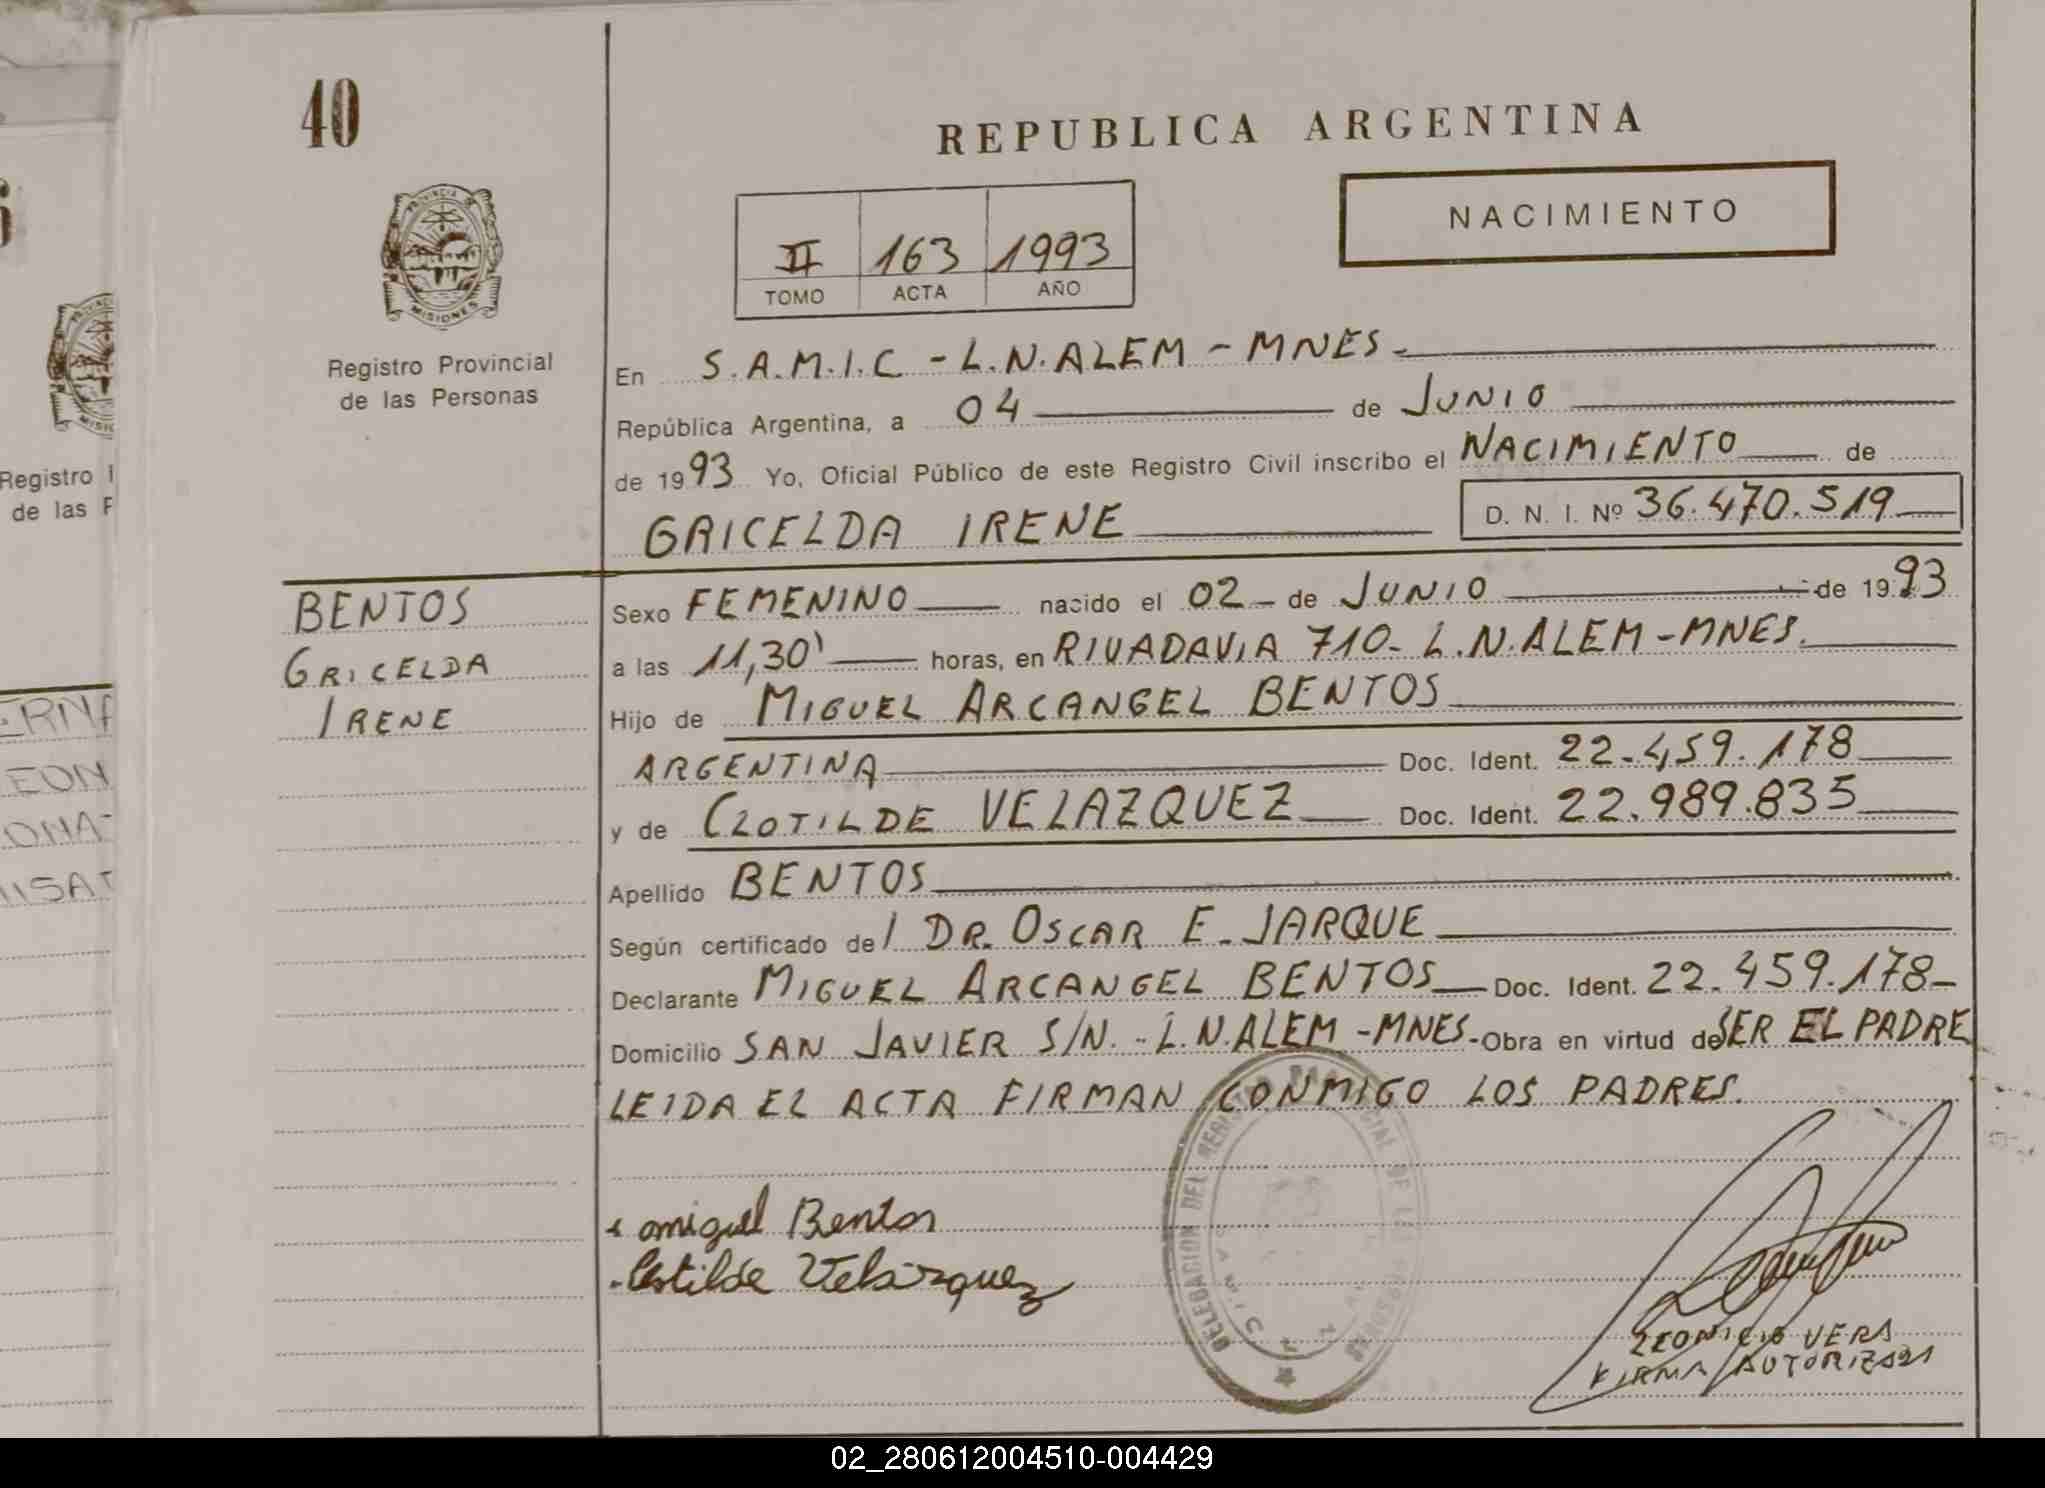 40
REPUBLICA ARGENTINA
NACIMIENTO
II 163 1993
TOMO ACTA AÑO
PROVINCIA DE
MISIONES
Registro Provincial
de las Personas
En S.A.M.I.C - L.N.ALEM - MNES.
República Argentina, a 04 de JUNIO
de 1993 Yo, Oficial Público de este Registro Civil inscribo el NACIMIENTO de
GRICELDA IRENE D. N. I. Nº 36.470.519
BENTOS
GRICELDA
IRENE
Sexo FEMENINO nacido el 02 de JUNIO de 1993
a las 11,30' horas, en RIVADAVIA 710- L.N.ALEM-MNES.
Hijo de MIGUEL ARCANGEL BENTOS
ARGENTINA Doc. Ident. 22.459.178
y de CLOTILDE VELAZQUEZ Doc. Ident. 22.989.835
Apellido BENTOS
Según certificado de/ DR. OSCAR E. JARQUE
Declarante MIGUEL ARCANGEL BENTOS Doc. Ident. 22.459.178-
Domicilio SAN JAVIER S/N. - L.N.ALEM -MNES- Obra en virtud de SER EL PADRE
LEIDA EL ACTA FIRMAN CONMIGO LOS PADRES.
miguel Bentos
Clotilde Velazquez
DELEGACION DEL REGISTRO PROVINCIAL DE LAS PERSONAS
LEONICIO VERA
FIRMA AUTORIZADA
Registro
de las
EON
02_280612004510-004429